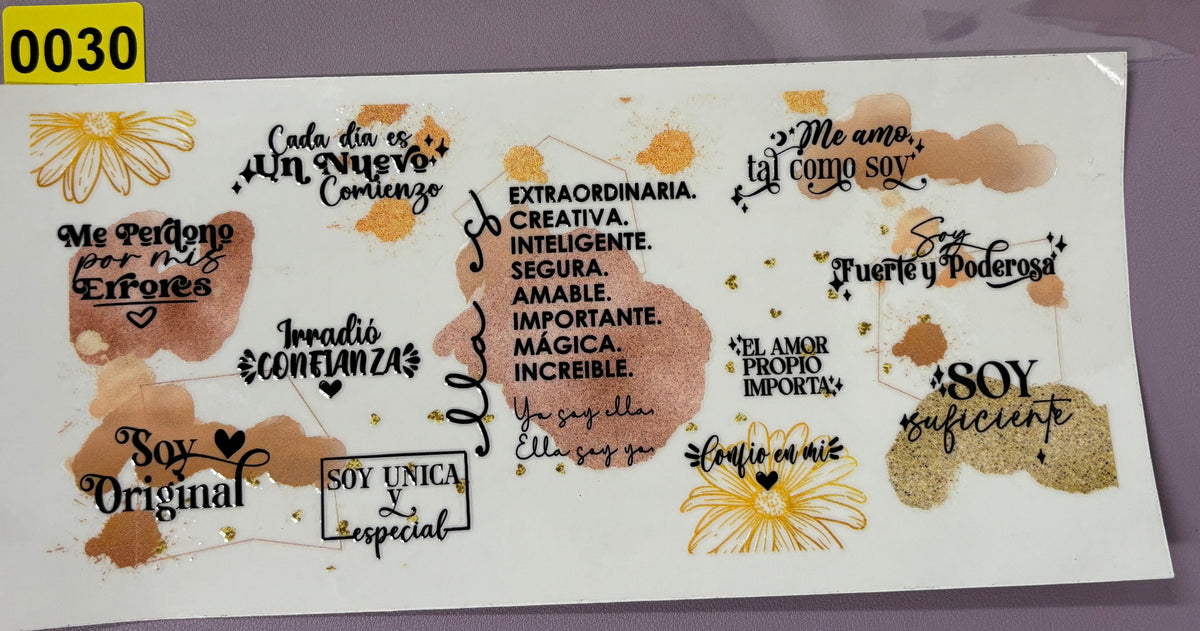 0030
Cada día es
Un Nuevo
Comienzo
Me Perdono
por mis
Errores
Irradió
CONFIANZA
Soy
Original
SOY UNICA
y
especial
Ella es
EXTRAORDINARIA.
CREATIVA.
INTELIGENTE.
SEGURA.
AMABLE.
IMPORTANTE.
MÁGICA.
INCREIBLE.
Yo soy ella.
Ella soy yo.
Me amo
tal como soy
Soy
Fuerte y Poderosa
EL AMOR
PROPIO
IMPORTA
SOY
suficiente
Confio en mi